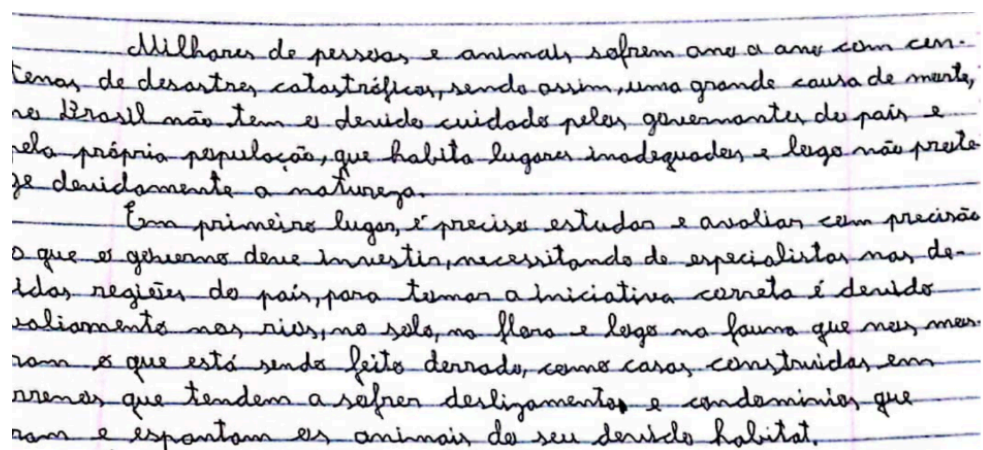 Milhares de pessoas e animais sofrem ano a ano com cen-
tenas de desastres catastróficos, sendo assim, uma grande causa de morte,
no Brasil não tem o devido cuidado pelos governantes do país e
pela própria população, que habita lugares inadequados e logo não prote
ge devidamente a natureza.
Em primeiro lugar, é preciso estudar e avaliar com precisão
o que o governo deve investir, necessitando de especialistas nas de-
vidas regiões do país, para tomar a iniciativa correta é devido
valiamento nos rios, no solo, na flora e logo na fauna que nos mos-
ram o que está sendo feito derrado, como casas construidas em
rrenos que tendem a sofrer deslizamentos e condominios que
ram e espantam os animais do seu devido habitat.